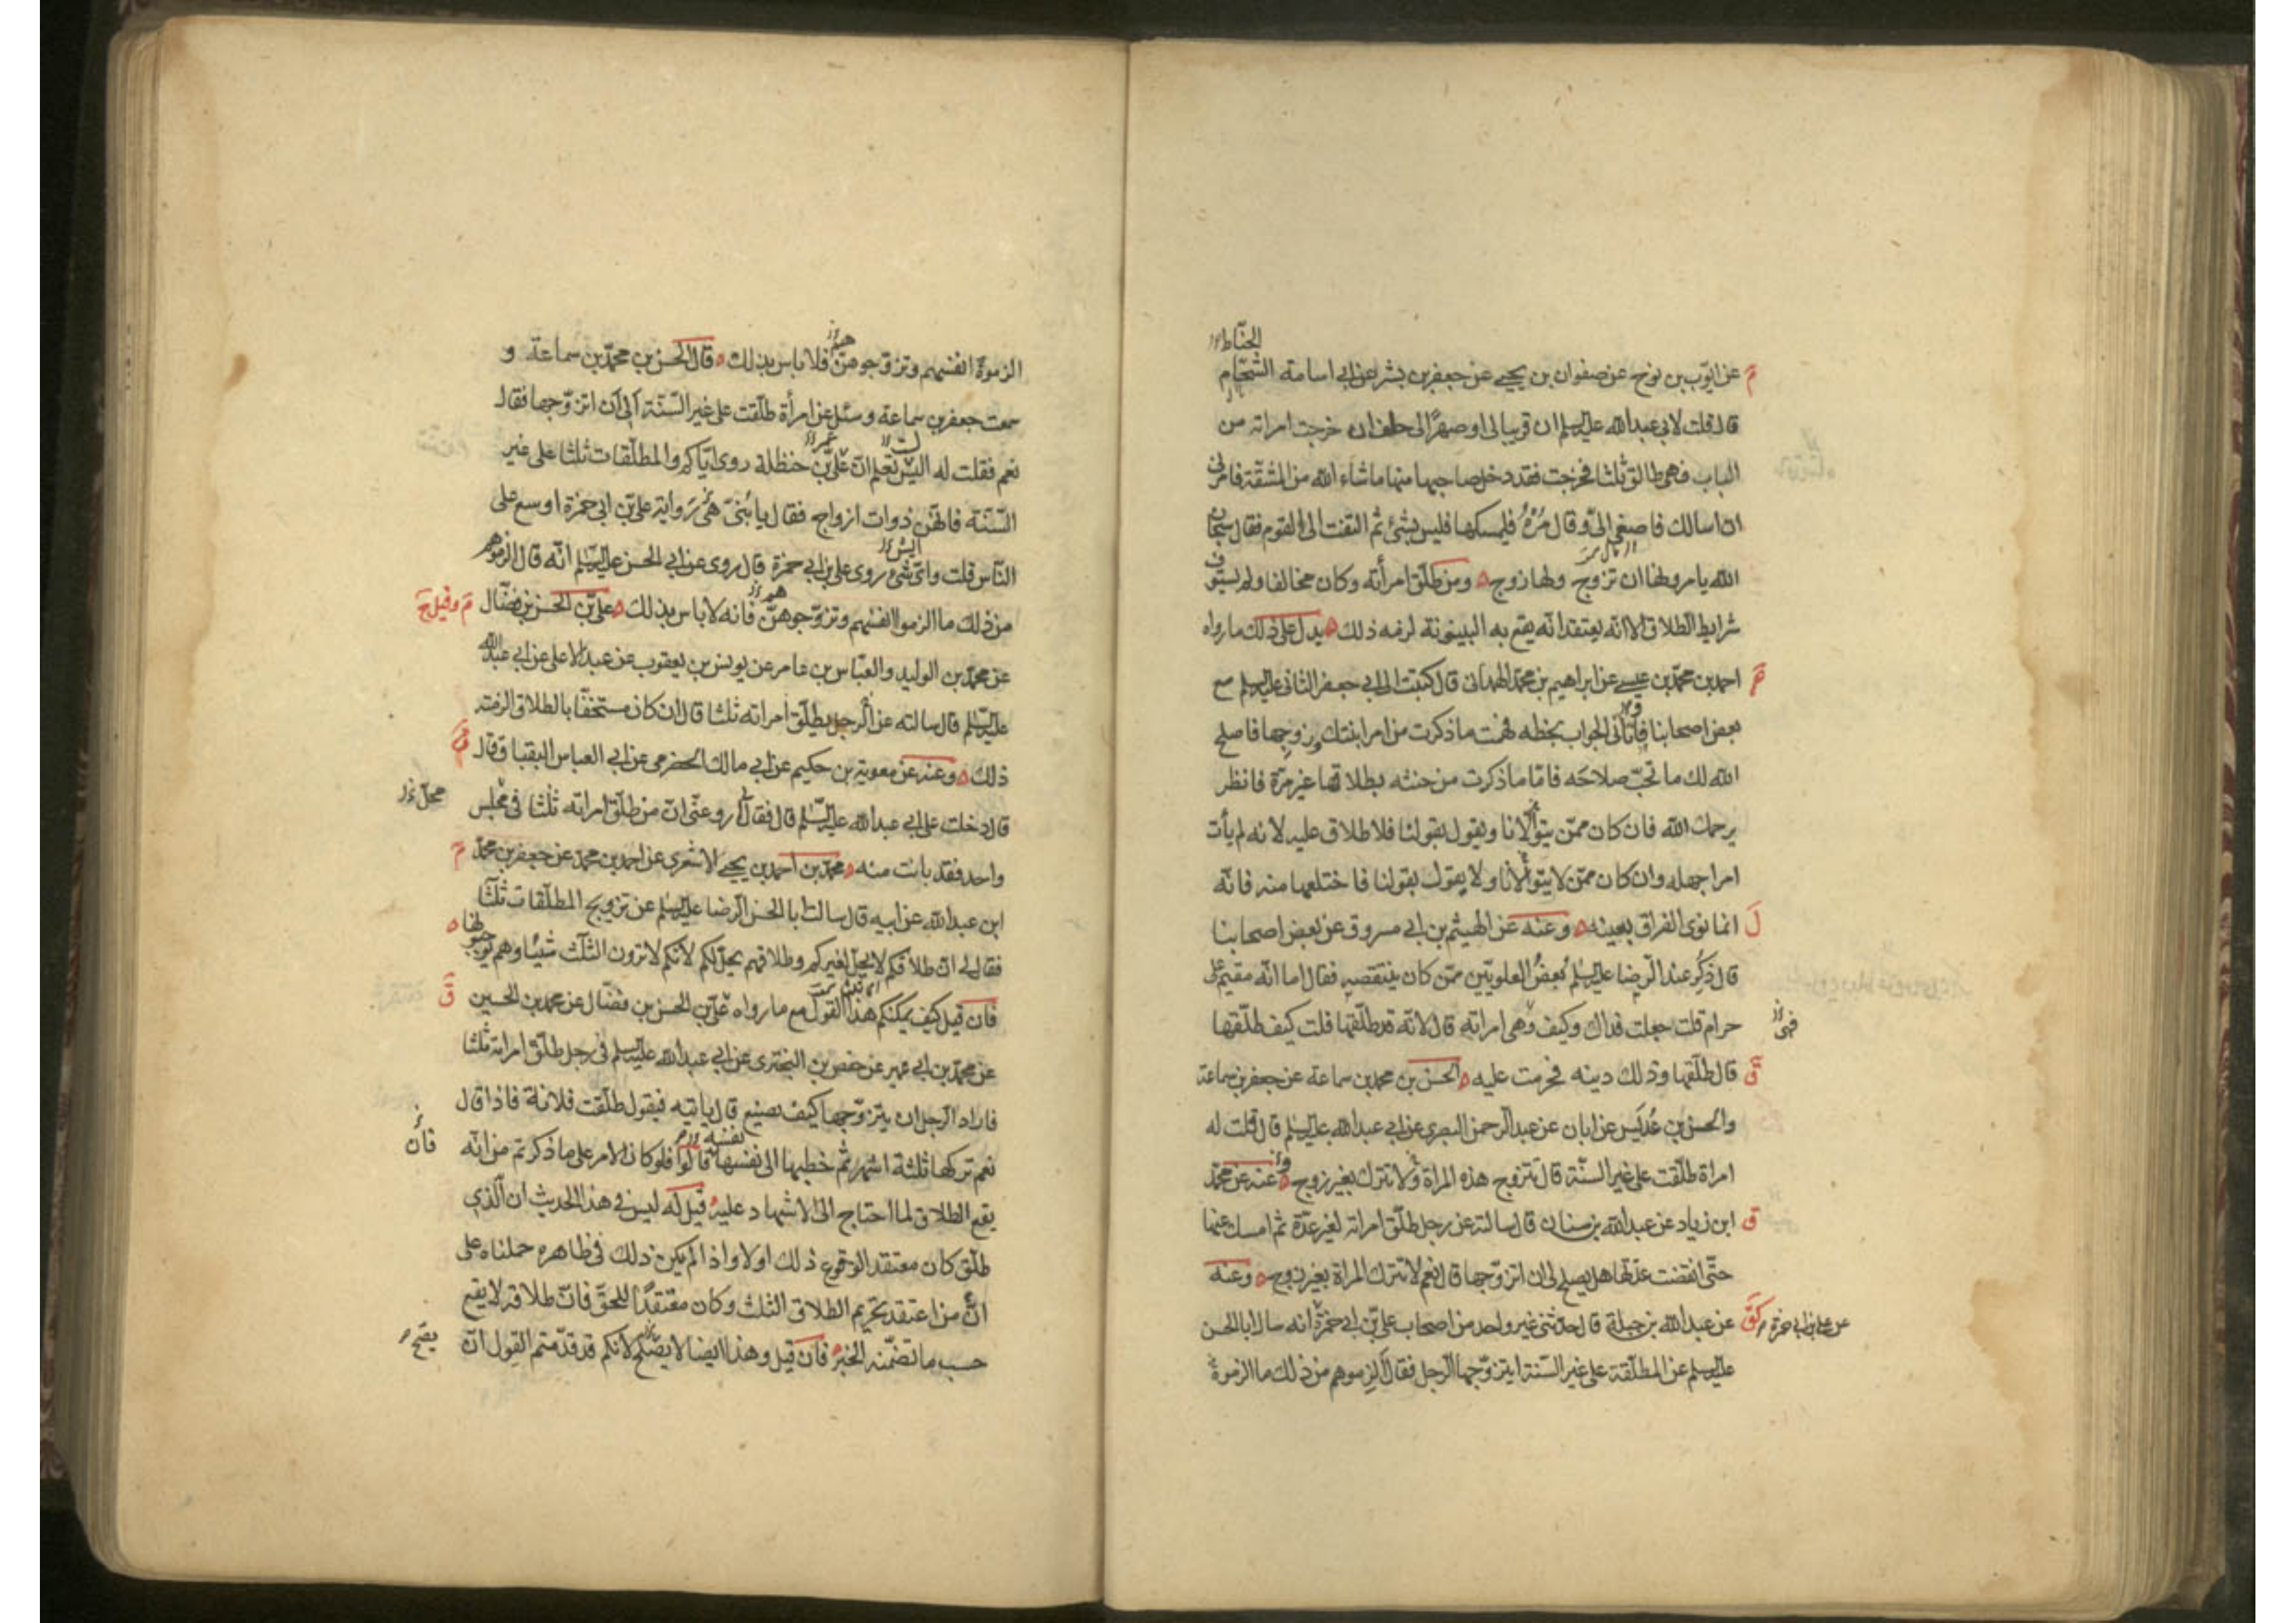 الحنّاط
عن ايّوب بن نوح عن صفوان بن يحيى عن جعفر بن بشر عن ابى اسامة الشحّام
قال قلت لابى عبد الله عليه السلم ان قريبا لى او صهرًا لى حلف ان خرجت امراته من
الباب فهى طالق ثلثا فخرجت فقد دخل صاحبها منها ما شاء الله من المشقّة فامرنى
ان اسالك فاصغى الىّ و قال مُرْهُ فليمسكها فليس بشئ ثم التفت الى القوم فقال سبحان
الله يامرونها ان تزوج ولها زوج ومن طلّق امرأته وكان مخالفا ولم يستوف
شرايط الطلاق الا انّه يعتقد انّه يقع به البينونة لزمه ذلك يدل على ذلك ما رواه
احمد بن محمّد بن عيسى عن ابراهيم بن محمّد الهمدانى قال كتبت الى ابى جعفر الثانى عليه السلم مع
بعض اصحابنا فاتانى الجواب بخطه فهمت ما ذكرت من امر ابنتك وزوجها فاصلح
الله لك ما تحبّ صلاحه فامّا ما ذكرت من حنثه بطلاقها غير مرّة فانظر
يرحمك الله فان كان ممّن يتولّانا ويقول بقولنا فلا طلاق عليه لانه لم يأت
امرا جهله وان كان ممّن لا يتولّانا ولا يقول بقولنا فاختلعها منه فانّه
انما نوى الفراق بعينه وعنه عن الهيثم بن ابى مسروق عن بعض اصحابنا
قال ذُكِرَ عند الرضا عليه السلم بعضُ العلويّين ممّن كان ينتقصه فقال اما انّه مقيم على
حرام قلت جعلت فداك وكيف وهى امراته قال لانّه قد طلّقها قلت كيف طلّقها
قال طلّقها وذلك دينه فحرمت عليه الحسن بن محمد بن سماعة عن جعفر بن سماعة
والحسن بن عُدَيس عن ابان عن عبد الرّحمن البصرى عن ابى عبد الله عليه السلم قال قلت له
امراة طلّقت على غير السنّة قال تتزوج هذه المراة ولا تترك بغير زوج وعنه عن محمّد
ابن زياد عن عبد الله بن سنان قال سالته عن رجل طلّق امراته لغير عدّة ثم امسك عنها
حتّى انقضت عدّتها هل يصلح لى ان اتزوّجها قال نعم لا تترك المراة بغير زوج وعنه
عن عبد الله بن جبلة قال حدّثنى غير واحد من اصحاب علىّ بن ابى حمزة انه سال ابا الحسن
عن على بن ابى حمزة
عليه السلم عن المطلّقة على غير السّنة ايتزوّجها الرّجل فقال الزموهم من ذلك ما الزموة
الزموة انفسهم وتزوّجوهنّ فلا باس بذلك قال الحسن بن محمّد بن سماعة و
سمعت جعفر بن سماعة وسئل عن امرأة طلّقت على غير السّنّة الى ان اتزوّجها فقال
نعم فقلت له اليس تعلم انّ علىّ بن حنظلة روى ايّاكم والمطلّقات ثلثا على غير
السّنّة فانهّن ذوات ازواج فقال يا بُنىّ رواية علىّ بن ابى حمزة اوسع على
النّاس قلت واىّ شئ روى على بن ابى حمزة قال روى عن ابى الحسن عليه السّلم انّه قال الزموهم
من ذلك ما الزموا انفسهم وتزوّجوهنّ فانه لا باس بذلك علىّ بن الحسن بن فضّال
عن محمّد بن الوليد والعبّاس بن عامر عن يونس بن يعقوب عن عبد الاعلى عن ابى عبد الله
عليه السّلم قال سالته عن الرّجل يطلّق امراته ثلثا قال ان كان مستخفّا بالطلاق الزمته
ذلك وعنه عن معوية بن حكيم عن ابى مالك الحضرمى عن ابى العباس البقباق قال
قال دخلت على ابى عبد الله عليه السّلم قال فقال ارو عنّى انّ من طلّق امراته ثلثا فى مجلس
واحد فقد بانت منه محمّد بن احمد بن يحيى الاشعرى عن احمد بن محمّد عن جعفر بن محمّد
ابن عبد الله عن ابيه قال سالت ابا الحسن الرّضا عليه السلم عن تزويج المطلّقات ثلثا
فقال لى انّ طلاقكم لا يحلّ لغيركم وطلاقهم يحلّ لكم لانّكم لا ترون الثلث شيئا وهم يوجبونها
فان قيل كيف يمكنكم هذا القول مع ما رواه علىّ بن الحسن بن فضّال عن محمد بن الحسين
عن محمّد بن ابى عمير عن حفص بن البخترى عن ابى عبد الله عليه السلم فى رجل طلّق امراته ثلثا
فاراد الرّجل ان يتزوّجها كيف يصنع قال ياتيه فيقول طلّقت فلانة فاذا قال
نعم تركها ثلثة اشهر ثم خطبها الى نفسها قالوا فلو كان الامر على ما ذكرتم من انّه
فان
يقع الطلاق لما احتاج الى الاشهاد عليه قيل له ليس فى هذا الحديث ان الّذى
طلّق كان معتقد الوقوع ذلك اولا واذا لم يكن ذلك فى ظاهره حملناه على
انّ من اعتقد تحريم الطلاق الثلث وكان معتقدًا للحقّ فانّ طلاقه لا يقع
حسب ما تضمّنه الخبر فان قيل وهذا ايضا لا يصحّ لكم لانكم قد قدّمتم القول انّ
يصّح